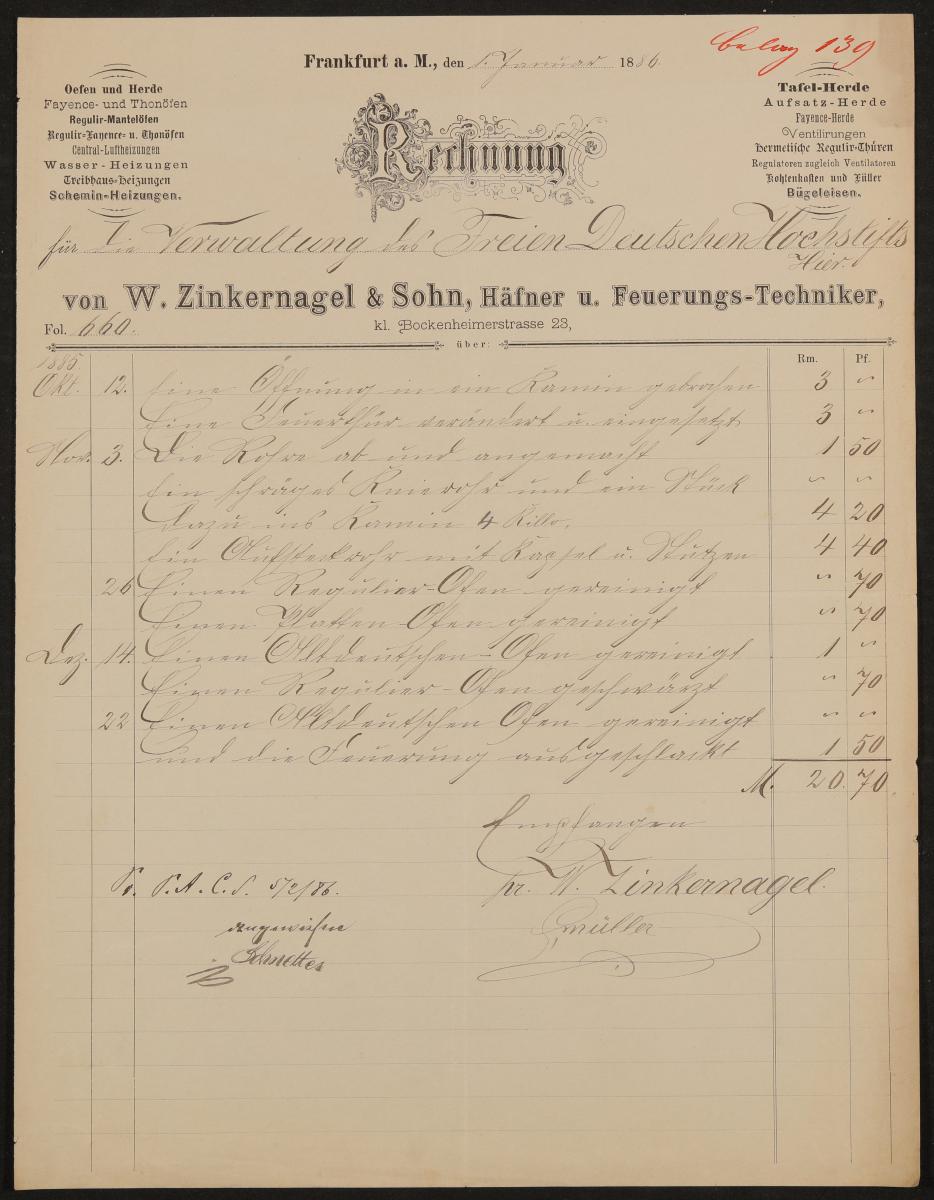 Belag 139
Frankfurt a. M., den 1. Januar 1886.
Oefen und Herde
Fayence- und Thonöfen
Regulir-Mantelöfen
Regulir-Fayence- u. Thonöfen
Central-Luftheizungen
Wasser-Heizungen
Treibhaus-Heizungen
Schemin-Heizungen.
Rechnung
Tafel-Herde
Aufsatz-Herde
Fayence-Herde
Ventilirungen
Hermetische Regulir-Thüren
Regulatoren zugleich Ventilatoren
Kohlenkasten und Füller
Bügeleisen.
für die Verwaltung des Freien Deutschen Hochstifts
Hier.
von W. Zinkernagel & Sohn, Häfner u. Feuerungs-Techniker,
Fol. 660. kl. Bockenheimerstrasse 23,
über:
Rm. Pf.
1885.
Okt. 12. Eine Öffnung in ein Kamin gebrochen 3 "
Eine Feuerthür verändert u. eingesetzt 3 "
Nov. 3. Die Rohre ab und angemacht 1 50
Ein schräges Knierohr und ein Stück " "
dazu ins Kamin 4 Killo. 4 20
Ein Aufsteckrohr mit Kapsel u. Stutzen 4 40
26 Einen Regulier-Ofen gereinigt " 70
Einen Platten-Ofen gereinigt " 70
Dez. 14. Einen Altdeutschen-Ofen gereinigt 1 "
Einen Regulier-Ofen geschwärzt " 70
22 Einen Altdeutschen Ofen gereinigt " "
und die Feuerung ausgeschlackt 1 50
M. 20. 70
Empfangen
pr. W. Zinkernagel.
Müller
5/2/86.
angewiesen